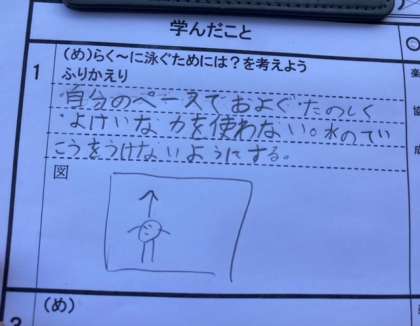 学んだこと
1
(め)らく〜に泳ぐためには?を考えよう
ふりかえり
自分のペースでおよぐ たのしく
よけいな力を使わない。水のてい
こうをうけないようにする。
図
(め)